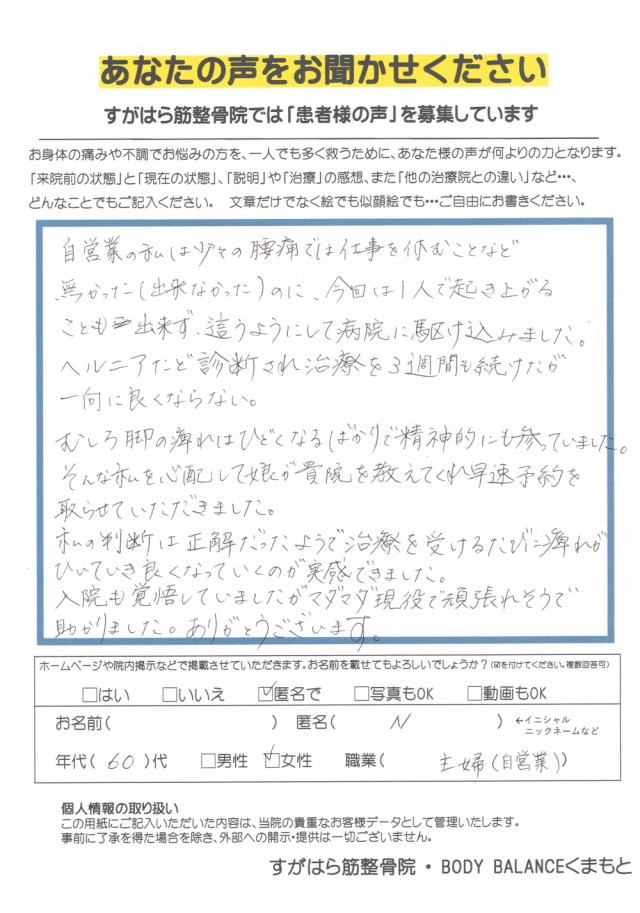 あなたの声をお聞かせください
すがはら筋整骨院では「患者様の声」を募集しています
お身体の痛みや不調でお悩みの方を、一人でも多く救うために、あなた様の声が何よりの力となります。
「来院前の状態」と「現在の状態」、「説明」や「治療」の感想、また「他の治療院との違い」など…、
どんなことでもご記入ください。 文章だけでなく絵でも似顔絵でも…ご自由にお書きください。
自営業の私は少々の腰痛では仕事を休むことなど
無かった(出来なかった)のに、今回は1人で起き上がる
ことも出来ず、這うようにして病院に駆け込みました。
ヘルニアだと診断され治療を3週間も続けたが
一向に良くならない。
むしろ脚の痺れはひどくなるばかりで精神的にも参っていました。
そんな私を心配して娘が貴院を教えてくれ早速予約を
取らせていただきました。
私の判断は正解だったようで治療を受けるたびに痺れが
ひいていき良くなっていくのが実感できました。
入院も覚悟していましたがマダマダ現役で頑張れそうで
助かりました。ありがとうございます。
ホームページや院内掲示などで掲載させていただきます。お名前を載せてもよろしいでしょうか?(☑を付けてください。複数回答可)
□はい □いいえ ☑匿名で □写真もOK □動画もOK
お名前( ) 匿名( N ) ←イニシャル
ニックネームなど
年代( 60 )代 □男性 ☑女性 職業( 主婦(自営業))
個人情報の取り扱い
この用紙にご記入いただいた内容は、当院の貴重なお客様データとして管理いたします。
事前に了承を得た場合を除き、外部への開示・提供は一切ございません。
すがはら筋整骨院・BODY BALANCEくまもと